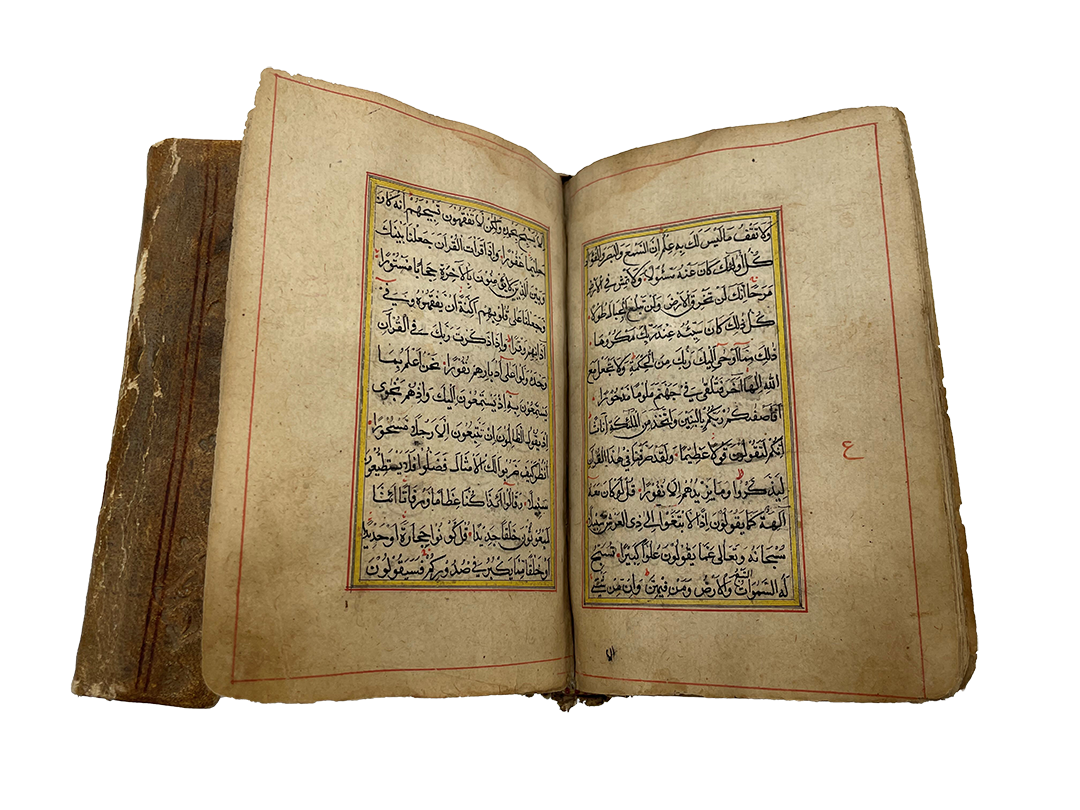 وَلَا تَقْفُ مَا لَيْسَ لَكَ بِهِ عِلْمٌ اِنَّ السَّمْعَ وَالْبَصَرَ وَالْفُؤَادَ
كُلُّ اُولٰئِكَ كَانَ عَنْهُ مَسْئُولًا وَلَا تَمْشِ فِي الْاَرْضِ
مَرَحًا اِنَّكَ لَنْ تَخْرِقَ الْاَرْضَ وَلَنْ تَبْلُغَ الْجِبَالَ طُولًا
كُلُّ ذٰلِكَ كَانَ سَيِّئُهُ عِنْدَ رَبِّكَ مَكْرُوهًا
ذٰلِكَ مِمَّا اَوْحٰى اِلَيْكَ رَبُّكَ مِنَ الْحِكْمَةِ وَلَا تَجْعَلْ مَعَ
اللّٰهِ اِلٰهًا آخَرَ فَتُلْقٰى فِي جَهَنَّمَ مَلُومًا مَدْحُورًا
اَفَاَصْفٰكُمْ رَبُّكُمْ بِالْبَنِينَ وَاتَّخَذَ مِنَ الْمَلٰئِكَةِ اِنَاثًا
اِنَّكُمْ لَتَقُولُونَ قَوْلًا عَظِيمًا وَلَقَدْ صَرَّفْنَا فِي هٰذَا الْقُرْآنِ
ع
لِيَذَّكَّرُوا وَمَا يَزِيدُهُمْ اِلَّا نُفُورًا قُلْ لَوْ كَانَ مَعَهُ
آلِهَةٌ كَمَا يَقُولُونَ اِذًا لَابْتَغَوْا اِلٰى ذِي الْعَرْشِ سَبِيلًا
سُبْحَانَهُ وَتَعَالٰى عَمَّا يَقُولُونَ عُلُوًّا كَبِيرًا تُسَبِّحُ
لَهُ السَّمٰوَاتُ السَّبْعُ وَالْاَرْضُ وَمَنْ فِيهِنَّ وَاِنْ مِنْ شَيْءٍ
الا
اِلَّا يُسَبِّحُ بِحَمْدِهِ وَلٰكِنْ لَا تَفْقَهُونَ تَسْبِيحَهُمْ اِنَّهُ كَانَ
حَلِيمًا غَفُورًا وَاِذَا قَرَاْتَ الْقُرْآنَ جَعَلْنَا بَيْنَكَ
وَبَيْنَ الَّذِينَ لَا يُؤْمِنُونَ بِالْآخِرَةِ حِجَابًا مَسْتُورًا
وَجَعَلْنَا عَلٰى قُلُوبِهِمْ اَكِنَّةً اَنْ يَفْقَهُوهُ وَفِي
آذَانِهِمْ وَقْرًا وَاِذَا ذَكَرْتَ رَبَّكَ فِي الْقُرْآنِ
وَحْدَهُ وَلَّوْا عَلٰى اَدْبَارِهِمْ نُفُورًا نَحْنُ اَعْلَمُ بِمَا
يَسْتَمِعُونَ بِهِ اِذْ يَسْتَمِعُونَ اِلَيْكَ وَاِذْ هُمْ نَجْوٰى
اِذْ يَقُولُ الظَّالِمُونَ اِنْ تَتَّبِعُونَ اِلَّا رَجُلًا مَسْحُورًا
اُنْظُرْ كَيْفَ ضَرَبُوا لَكَ الْاَمْثَالَ فَضَلُّوا فَلَا يَسْتَطِيعُونَ
سَبِيلًا وَقَالُوا اَئِذَا كُنَّا عِظَامًا وَرُفَاتًا اَئِنَّا
لَمَبْعُوثُونَ خَلْقًا جَدِيدًا قُلْ كُونُوا حِجَارَةً اَوْ حَدِيدًا
اَوْ خَلْقًا مِمَّا يَكْبُرُ فِي صُدُورِكُمْ فَسَيَقُولُونَ